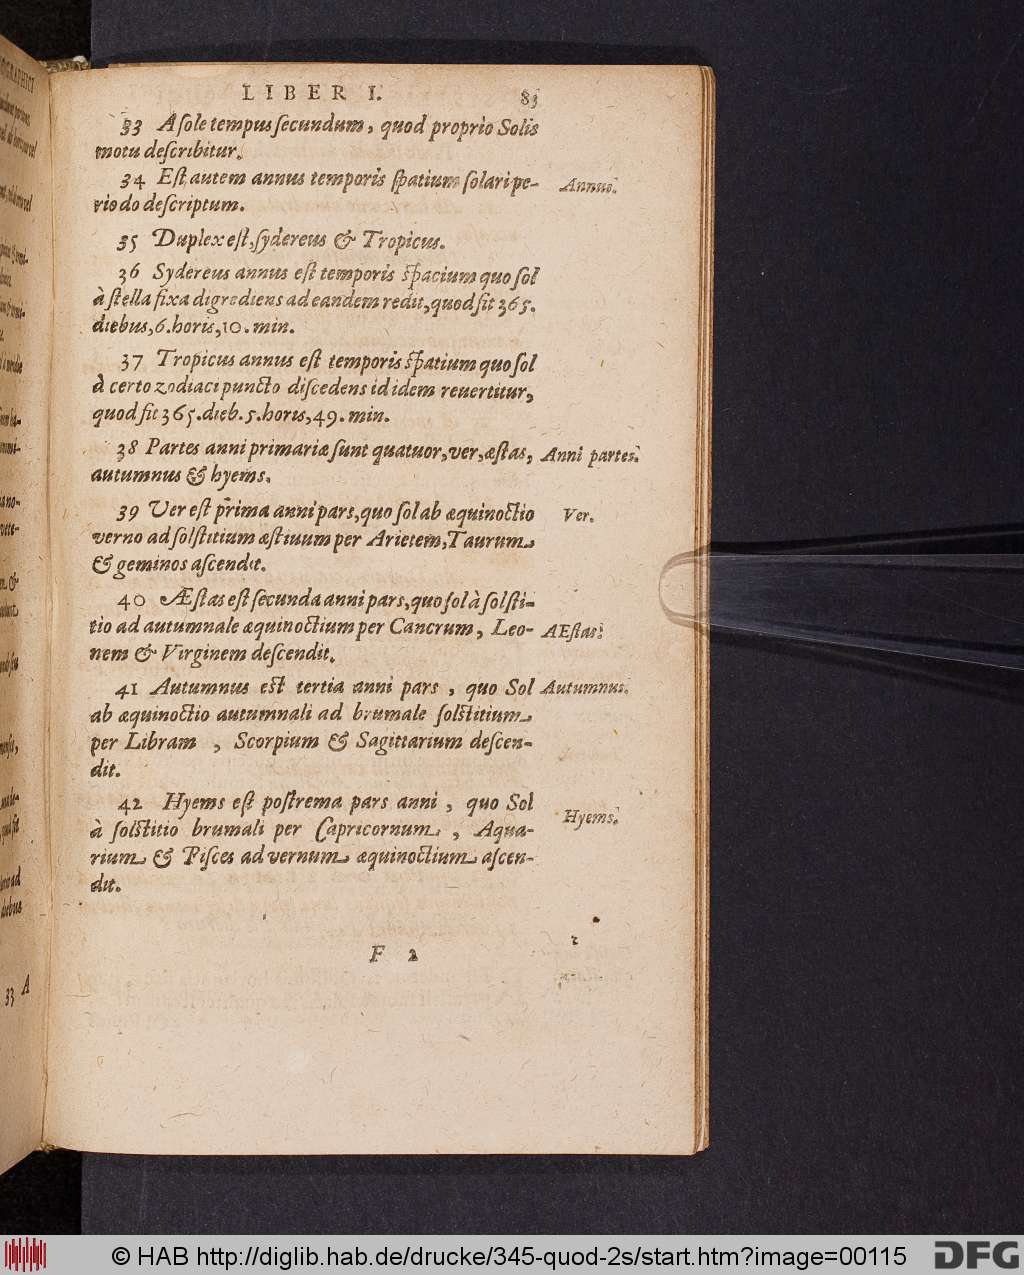 LIBER I. 83
33 A sole tempus secundum, quod proprio Solis
motu describitur.
34 Est autem annus temporis spatium solari pe-
riodo descriptum.
Annus.
35 Duplex est, sydereus & Tropicus.
36 Sydereus annus est temporis spacium quo sol
à stella fixa digrediens ad eandem redit, quod fit 365.
diebus, 6. horis, 10. min.
37 Tropicus annus est temporis spatium quo sol
à certo zodiaci puncto discedens id idem reuertitur,
quod fit 365. dieb. 5. horis, 49. min.
38 Partes anni primariæ sunt quatuor, ver, æstas,
autumnus & hyems.
Anni partes.
39 Ver est prima anni pars, quo sol ab æquinoctio
verno ad solstitium æstiuum per Arietem, Taurum
& geminos ascendit.
Ver.
40 Æstas est secunda anni pars, quo sol à solsti-
tio ad autumnale æquinoctium per Cancrum, Leo-
nem & Virginem descendit.
AEstas.
41 Autumnus est tertia anni pars, quo Sol
ab æquinoctio autumnali ad brumale solstitium
per Libram, Scorpium & Sagittarium descen-
dit.
Autumnus.
42 Hyems est postrema pars anni, quo Sol
à solstitio brumali per Capricornum, Aqua-
rium & Pisces ad vernum æquinoctium ascen-
dit.
Hyems.
F 2
33 A
© HAB http://diglib.hab.de/drucke/345-quod-2s/start.htm?image=00115
DFG